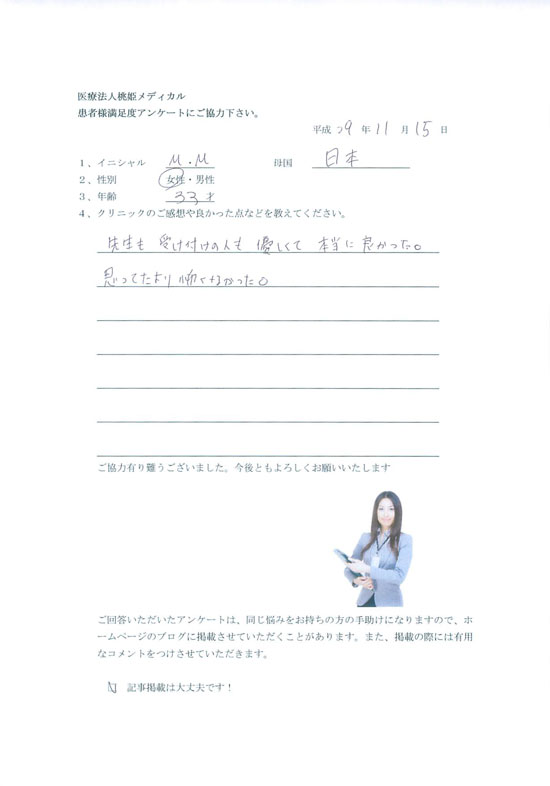 医療法人桃姫メディカル
患者様満足度アンケートにご協力下さい。
平成 29 年 11 月 15 日
1、イニシャル M.M 母国 日本
2、性別 女性・男性
3、年齢 33才
4、クリニックのご感想や良かった点などを教えてください。
先生も 受け付けの人も 優しくて 本当に 良かった。
思ってたより 怖くなかった。
ご協力有り難うございました。今後ともよろしくお願いいたします
ご回答いただいたアンケートは、同じ悩みをお持ちの方の手助けになりますので、ホ
ームページのブログに掲載させていただくことがあります。また、掲載の際には有用
なコメントをつけさせていただきます。
記事掲載は大丈夫です！